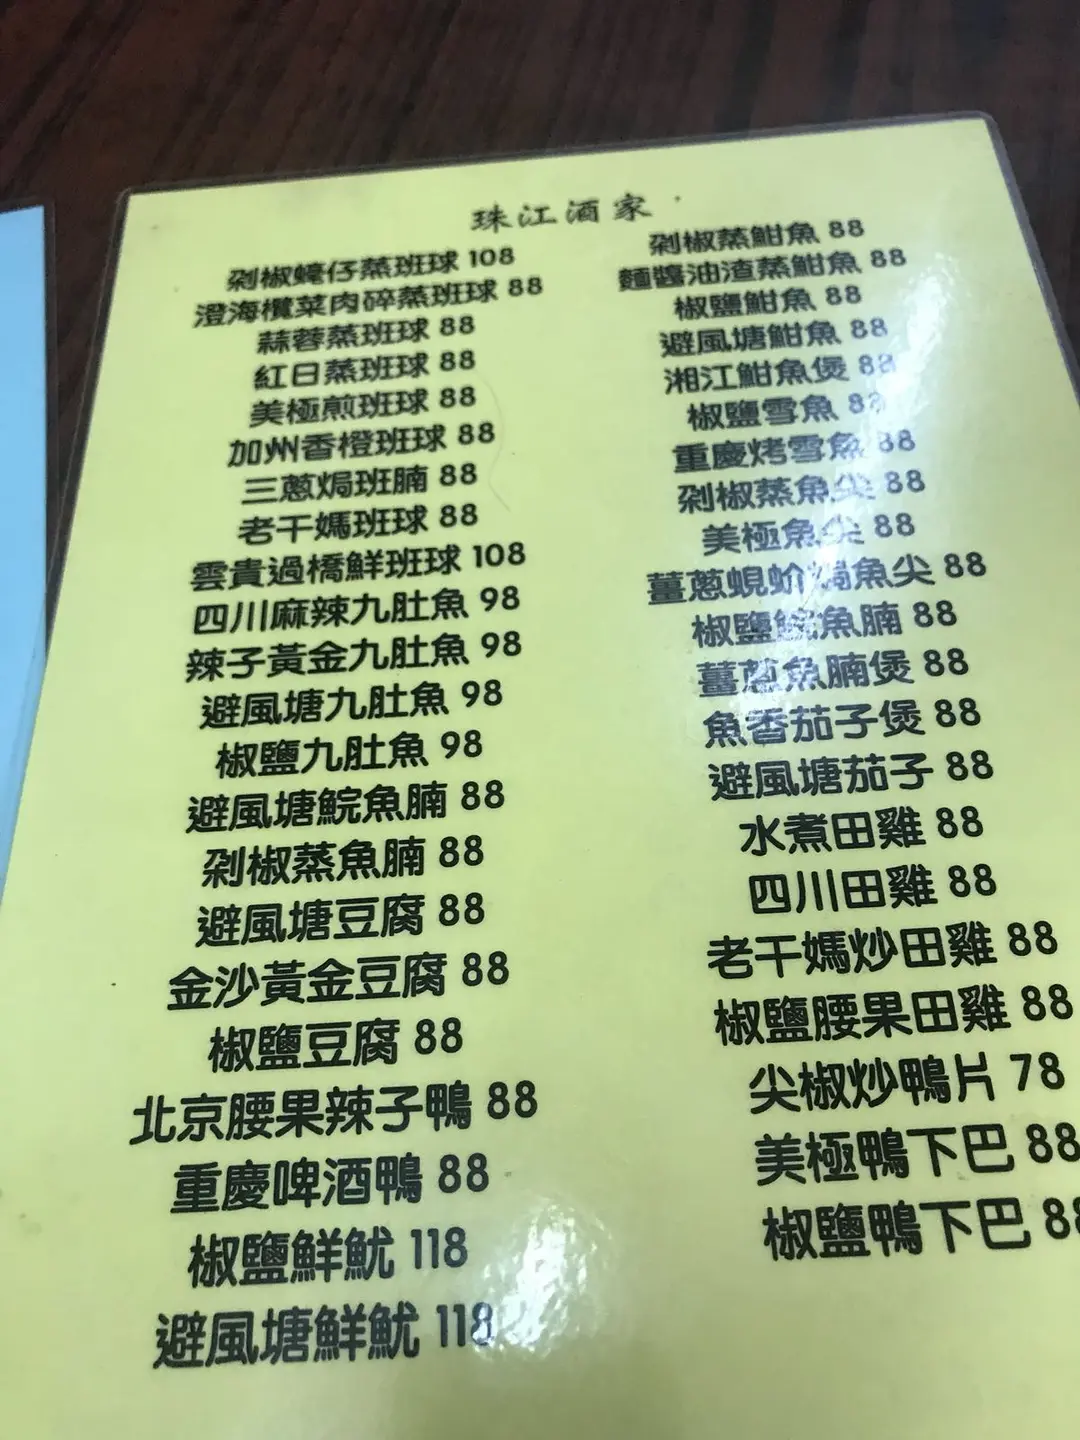 珠江酒家
剁椒蟶仔蒸班球 108
澄海欖菜肉碎蒸班球 88
蒜蓉蒸班球 88
紅日蒸班球 88
美極煎班球 88
加州香橙班球 88
三蔥焗班腩 88
老干媽班球 88
雲貴過橋鮮班球 108
四川麻辣九肚魚 98
辣子黃金九肚魚 98
避風塘九肚魚 98
椒鹽九肚魚 98
避風塘鯇魚腩 88
剁椒蒸魚腩 88
避風塘豆腐 88
金沙黃金豆腐 88
椒鹽豆腐 88
北京腰果辣子鴨 88
重慶啤酒鴨 88
椒鹽鮮魷 118
避風塘鮮魷 118
剁椒蒸魽魚 88
麵醬油渣蒸魽魚 88
椒鹽魽魚 88
避風塘魽魚 88
湘江魽魚煲 88
椒鹽雪魚 88
重慶烤雪魚 88
剁椒蒸魚尖 88
美極魚尖 88
薑蔥蜆蚧焗魚尖 88
椒鹽鯇魚腩 88
薑蔥魚腩煲 88
魚香茄子煲 88
避風塘茄子 88
水煮田雞 88
四川田雞 88
老干媽炒田雞 88
椒鹽腰果田雞 88
尖椒炒鴨片 78
美極鴨下巴 88
椒鹽鴨下巴 88